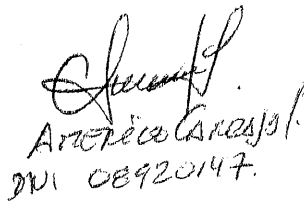 Americo Carbajal.
DNI 08920147.